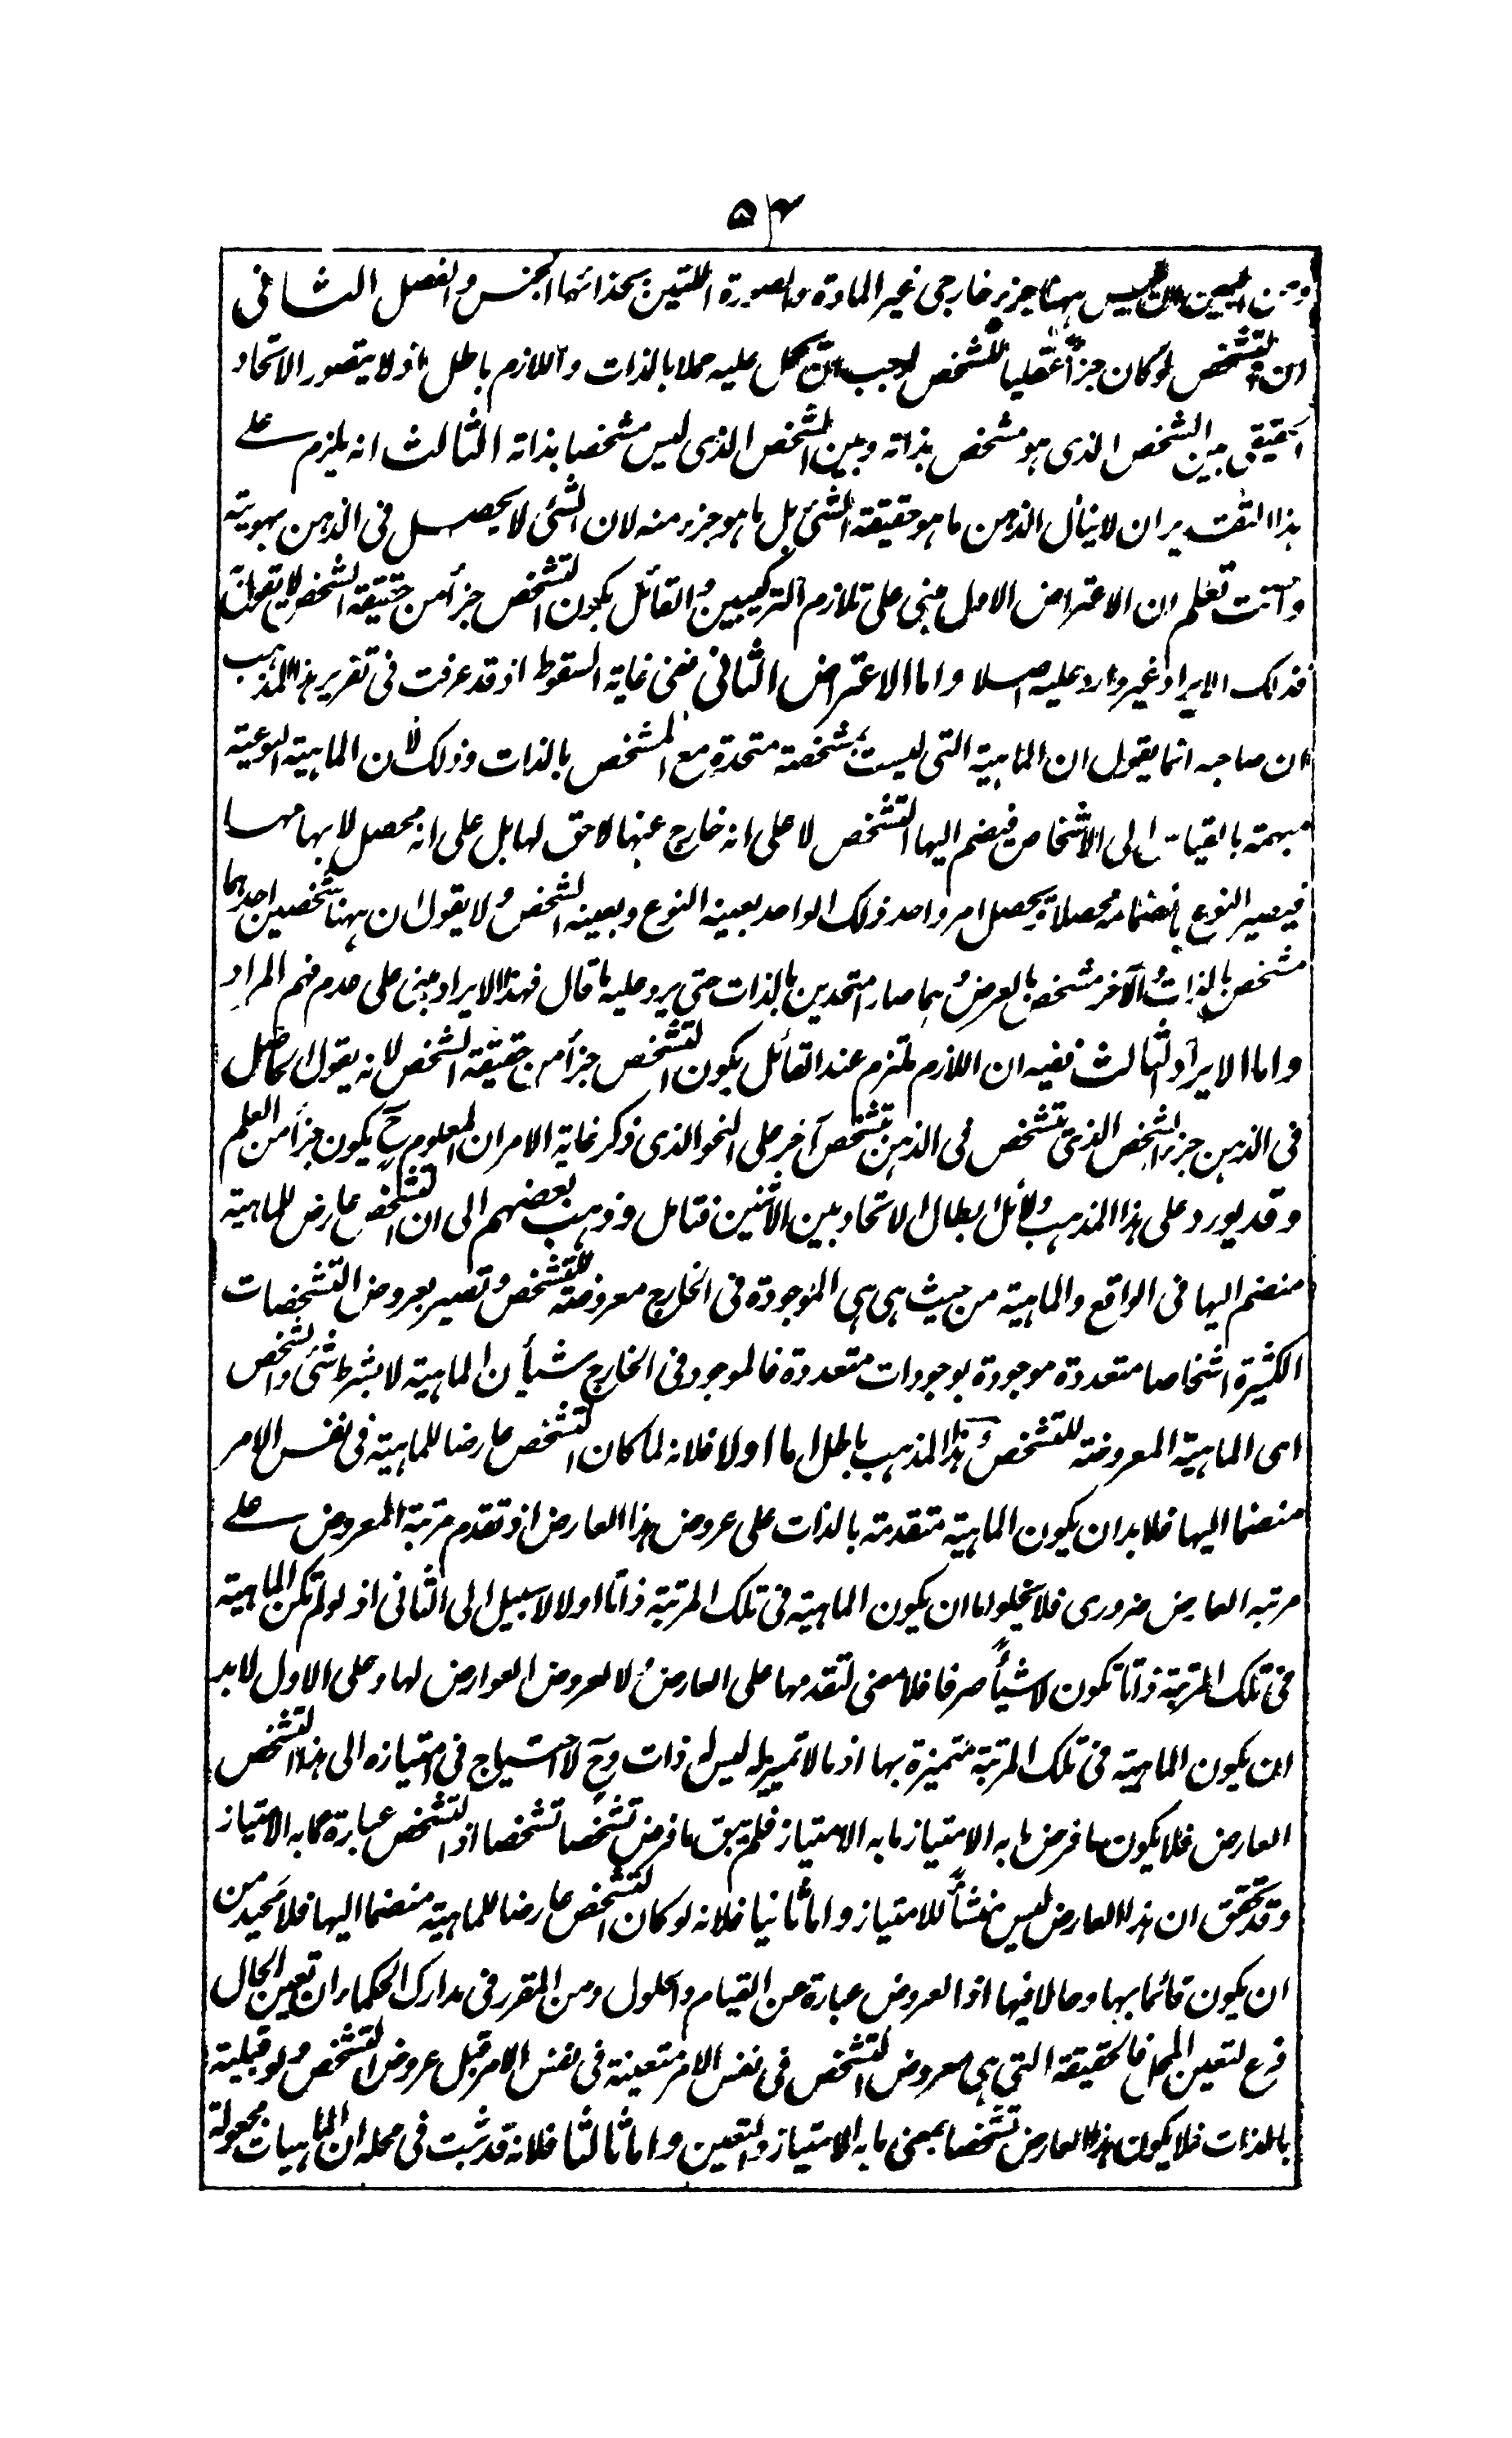 ۵۴
ومن البين ان ليس ههنا جزء خارجى غير المادة والصورة اللتين بحذائهما الجنس والفصل الثانى
ان التشخص لو كان جزأ عقليا للشخص لوجب ان يحمل عليه حملا بالذات واللازم باطل اذ لا يتصور الاتحاد
الحقيقى بين الشخص الذى هو مشخص بذاته وبين الشخص الذى ليس مشخصا بذاته الثالث انه يلزم على
هذا التقدير ان لا ينال الذهن ما هو حقيقة الشئ بل ما هو جزء منه لان الشئ لا يحصل فى الذهن بهويته
وانت تعلم ان الاعتراض الاول مبنى على تلازم التركيبين والقائل بكون التشخص جزأ من حقيقة الشخص لا يقول به
فذلك الايراد غير وارد عليه اصلا واما الاعتراض الثانى ففى غاية السقوط اذ قد عرفت فى تقرير هذا المذهب
ان صاحبه انما يقول ان الماهية التى ليست بشخصة متحدة مع المشخص بالذات وذلك لان الماهية النوعية
مبهمة بالقياس الى الاشخاص فينضم اليها التشخص لا على انه خارج عنها لاحق لها بل على انه محصل لابهامها
فيصير النوع بانضمامه محصلا يحصل امر واحد ذلك الواحد بعينه النوع وبعينه الشخص ولا يقول ان ههنا شخصين احدهما
مشخص بالذات والآخر مشخص بالعرض وهما صارا متحدين بالذات حتى يرد عليه ما قال فهذا الايراد مبنى على عدم فهم المراد
واما الايراد الثالث ففيه ان اللازم ملتزم عند القائل بكون التشخص جزأ من حقيقة الشخص لانه يقول الحاصل
فى الذهن جزء الشخص الذى تشخص فى الذهن بتشخص آخر على النحو الذى ذكر غاية الامر ان المعلوم ح يكون جزأ من العلم
وقد يورد على هذا المذهب دلائل ابطال الاتحاد بين الاثنين فتامل وذهب بعضهم الى ان التشخص عارض للماهية
منضم اليها فى الواقع والماهية من حيث هى هى الموجودة فى الخارج معروضة للتشخص وتصير بعروض التشخصات
الكثيرة اشخاصا متعددة موجودة بوجودات متعددة فالموجود فى الخارج شيأن الماهية لا بشرط شئ والشخص
اى الماهية المعروضة للتشخص وهذا المذهب باطل اما اولا فلانه لما كان التشخص عارضا للماهية فى نفس الامر
منضما اليها فلا بد ان يكون الماهية متقدمة بالذات على عروض هذا العارض اذ تقدم مرتبة المعروض على
مرتبة العارض ضرورى فلا يخلو اما ان يكون الماهية فى تلك المرتبة ذاتا اولا لا سبيل الى الثانى اذ لو لم تكن الماهية
فى تلك المرتبة ذاتا تكون لا شيأ صرفا فلا معنى لتقدمها على العارض ولا لعروض العوارض لها وعلى الاول لا بد
ان يكون الماهية فى تلك المرتبة متميزة بها اذ ما لا تميز له ليس له ذات وح لا احتياج فى امتيازه الى هذا التشخص
العارض فلا يكون ما فرض ما به الامتياز ما به الامتياز فلم يبق ما فرض تشخصا تشخصا اذ التشخص عبارة عما به الامتياز
وقد تحقق ان هذا العارض ليس منشأ للامتياز واما ثانيا فلانه لو كان التشخص عارضا للماهية منضما اليها فلا محيد من
ان يكون قائما بها وحالا فيها اذ العروض عبارة عن القيام والحلول ومن المقرر فى مدارك الحكماء ان تعين الحال
فرع لتعين المحل فالحقيقة التى هى معروض التشخص فى نفس الامر متعينة فى نفس الامر قبل عروض التشخص ولو قبلية
بالذات فلا يكون هذا العارض تشخصا بمعنى ما به الامتياز والتعين واما ثالثا فلانه قد ثبت فى محله ان الماهيات مجعولة